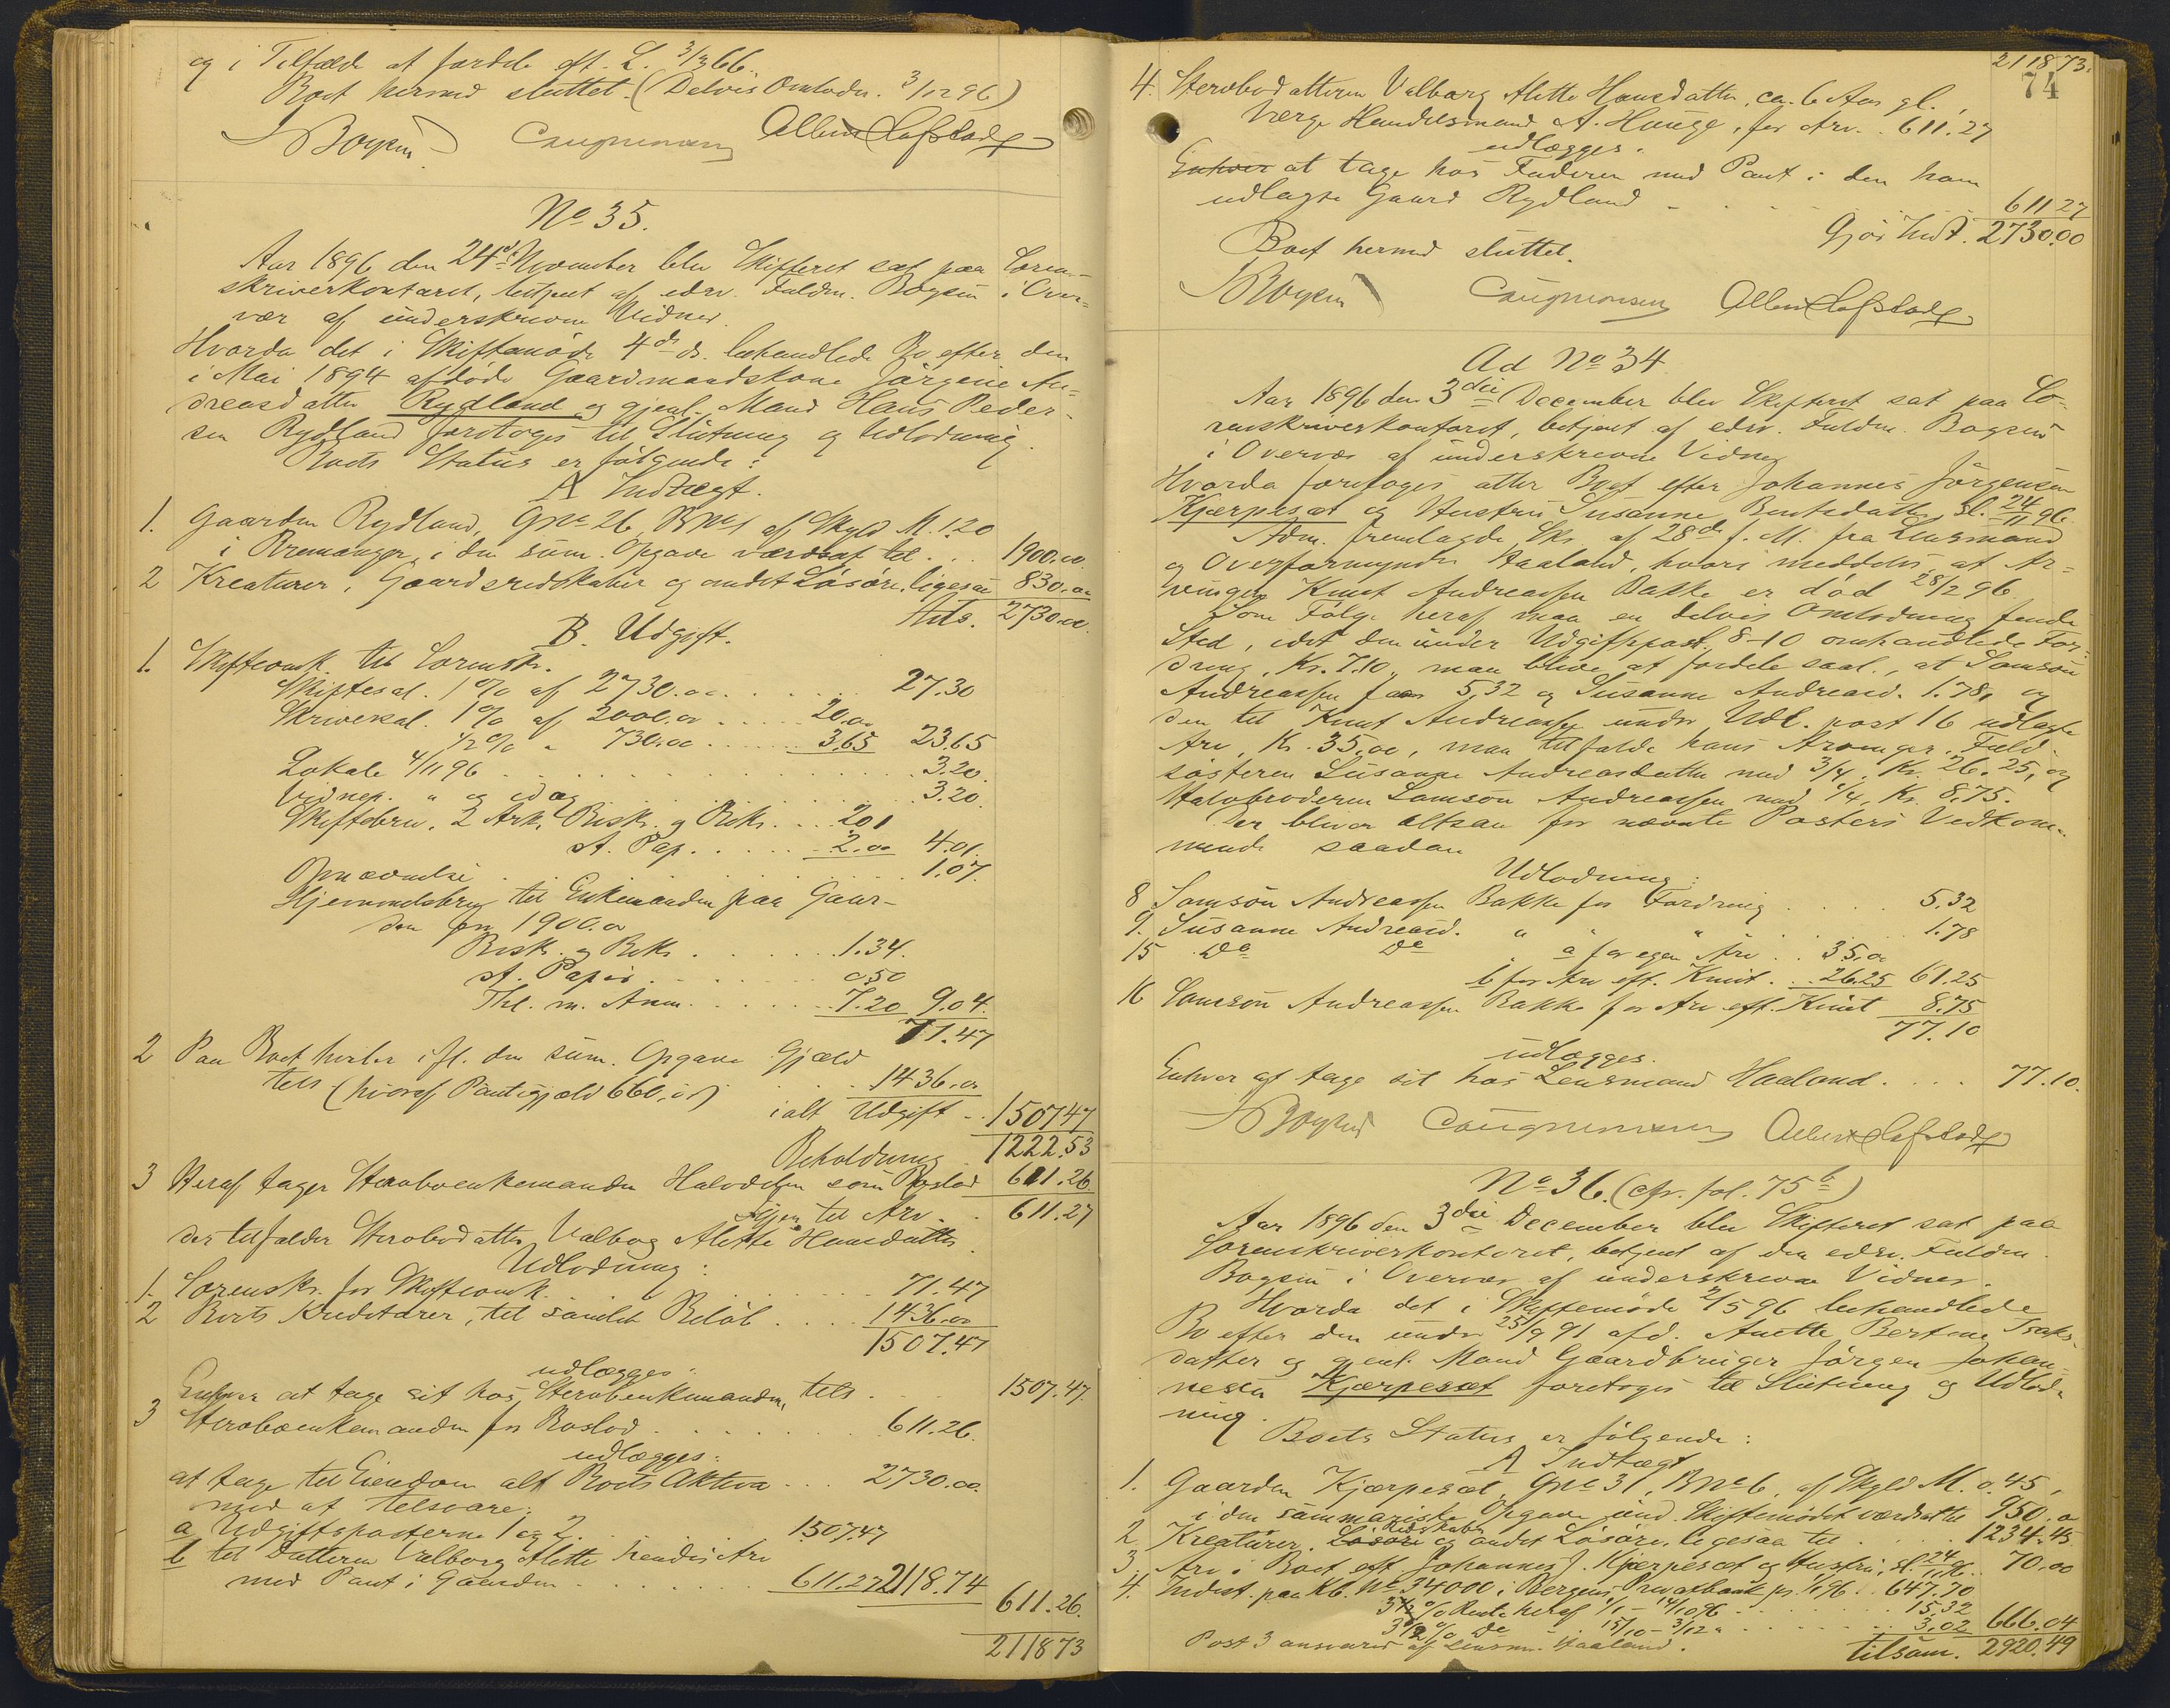 og i Tilfælde at fordele eft. L. 3/3 66.
Boet hermed sluttet. (Delvis Omlodn. 3/12 96)
Boysen
No 35.
Aar 1896 den 24de November blev Skifteret sat paa Soren-
skriverkontoret, betjent af edsv. Fuldm. Boysen i Over-
vær af underskrevne Vidner.
Hvorda det i Skiftemøde 4de ds. behandlede Bo efter den
i Mai 1894 afdøde Gaardmandskone Jørgine An-
dreasdatter Rydland og gjenl. Mand Hans Peder-
sen Rydland foretoges til Slutning og Udlodning.
Boets Status er følgende:
A Indtægt.
1. Gaarden Rydland, Gno 26, Bno 1 af Skyld M. 1.20
i Bremanger, i den sum. Opgave værdsat til . . 1900.00
2 Kreaturer, Gaardsredskaber og andet Løsøre ligesaa 830.00
Tils. 2730.00.
B. Udgift.
1. Skifteomk. til Sorenskr.
Skiftesal. 1% af 2730.00 . . . . 27.30
Skriversal. 1% af 2000.00 . . . . 20.00
1/2% " 730.00 . . . . 3.65 23.65
Lokale 4/11 96 . . . . 3.20.
Vidner " og idag . . . . 3.20.
Skiftebrev. 2 Ark. Besk. og Bekr. . . 2.01
st. Pap. . . . . 2.00 4.01.
Opnævnelse . . . . 1.07.
Hjemmelsbrev til Enkemanden paa Gaar-
den for 1900.00
Besk. og Bekr. . . . . 1.34.
st. Papir . . . . 0.50
Thl. m. Anm. . . . . 7.20 9.04.
71.47
2 Paa Boet hviler ifl. den sum. Opgave Gjæld
tils. (hvoraf Pantegjæld 660.00) . . . 1436.00
ialt Udgift . . 1507.47
Beholdning 1222.53
3 Heraf tager Sterboenkemanden Halvdelen som Boslod 611.26
Igjen til Arv . . 611.27
der tilfalder Sterbodatter Valborg Alette Hansdatter.
Udlodning:
1. Sorenskr. for Skifteomk. . . . . 71.47
2 Boets Kreditorer, til samlet Beløb . . . . 1436.00
1507.47
udlægges:
Enhver at tage sit hos Sterboenkemanden, tils. . . . 1507.47.
3 Sterboenkemanden for Boslod . . . . 611.26.
udlægges:
at tage til Eiendom alt Boets Aktiva . . . 2730.00.
med at tilsvare:
a Udgiftsposterne 1 og 2. . . . 1507.47
b til Datteren Valborg Alette hendes Arv
med Pant i Gaarden . . . . 611.27 2118.74
611.26.
2118 73
2118 73.
74
4. Sterbodatteren Valborg Alette Hansdatter, ca. 6 Aar gl.,
Værge Handelsmand A. Hauge, for Arv . . 611.27
udlægges.
Enhver at tage hos Faderen med Pant i den ham
udlagte Gaard Rydland . . . . 611 27
Gjør Indt. 2730.00
Boet hermed sluttet.
Boysen
Ad No 34
Aar 1896 den 3die December blev Skifteret sat paa So-
renskriverkontoret, betjent af edsv. Fuldm. Boysen
i Overvær af underskrevne Vidner
Hvorda foretoges atter Boet efter Johannes Jørgensen
Kjærpesæt og Hustru Susanne Bentsdatter, sl. 24/11 96.
Adm. fremlagde Skr. af 28de f. M. fra Lensmand
og Overformynder Haaland, hvori meddeles, at Ar-
vingen Knut Andreassen Bakke er død 28/2 96.
Som Følge heraf maa en delvis Omlodning finde
Sted, idet den under Udgiftspost. 8-10 omhandlede For-
dring, Kr. 7.10, maa blive at fordele saal., at Samson
Andreassen faar 5,32 og Susanne Andreasd. 1.78, og
den til Knut Andreassen under Udl. post 16 udlagte
Arv, Kr. 35.00, maa tilfalde hans Arvinger, Fuld-
søsteren Susanne Andreasdatter med 3/4, Kr. 26.25, og
Halvbroderen Samson Andreassen med 1/4, Kr. 8,75.
Der bliver altsaa for nævnte Posters Vedkom-
mende saadan
Udlodning:
8 Samson Andreassen Bakke for Fordring . . . . 5.32
9. Susanne Andreasd. " " " . . . . 1.78
15 Do Do a for egen Arv . . 35.00
b for Arv eft. Knut . . 26.25 61.25
16 Samson Andreassen Bakke for Arv eft. Knut 8.75
77.10
udlægges.
Enhver at tage sit hos Lensmand Haaland . . . . 77.10.
Boysen
No 36. (cfr. fol. 75b)
Aar 1896 den 3die December blev Skifteret sat paa
Sorenskriverkontoret, betjent af den edsv. Fuldm.
Boysen i Overvær af underskrevne Vidner.
Hvorda det i Skiftemøde 2/5 96 behandlede
Bo efter den under 25/9 91 afd. Anette Bertine Isaks-
datter og gjenl. Mand Gaardbruger Jørgen Johan-
nesen Kjærpesæt foretoges til Slutning og Udlod-
ning.
Boets Status er følgende:
A Indtægt
1. Gaarden Kjærpesæt, Gno 31, Bno 6, af Skyld M. 0.45,
i den summariske Opgave und. Skiftemødet værdsat til 950.00
2. Kreaturer, Løsøre Redskaber og andet Løsøre, ligesaa til . . 1234.45.
3. Arv i Boet eft. Johannes J. Kjærpesæt og Hustru, sl. 24/11 96. . 70.00
4. Indest. paa Kb. No 34000 i Bergens Privatbank pr. 1/1 96 . . 647.70
3 1/2 % Rente heraf 1/1 - 14/10 96 . . . . 15.32
3 1/2 % Do 15/10 - 3/12 " . . . . 3.02 666.04
Post 3 ansvares af Lensm. Haaland. tilsam. 2920.49